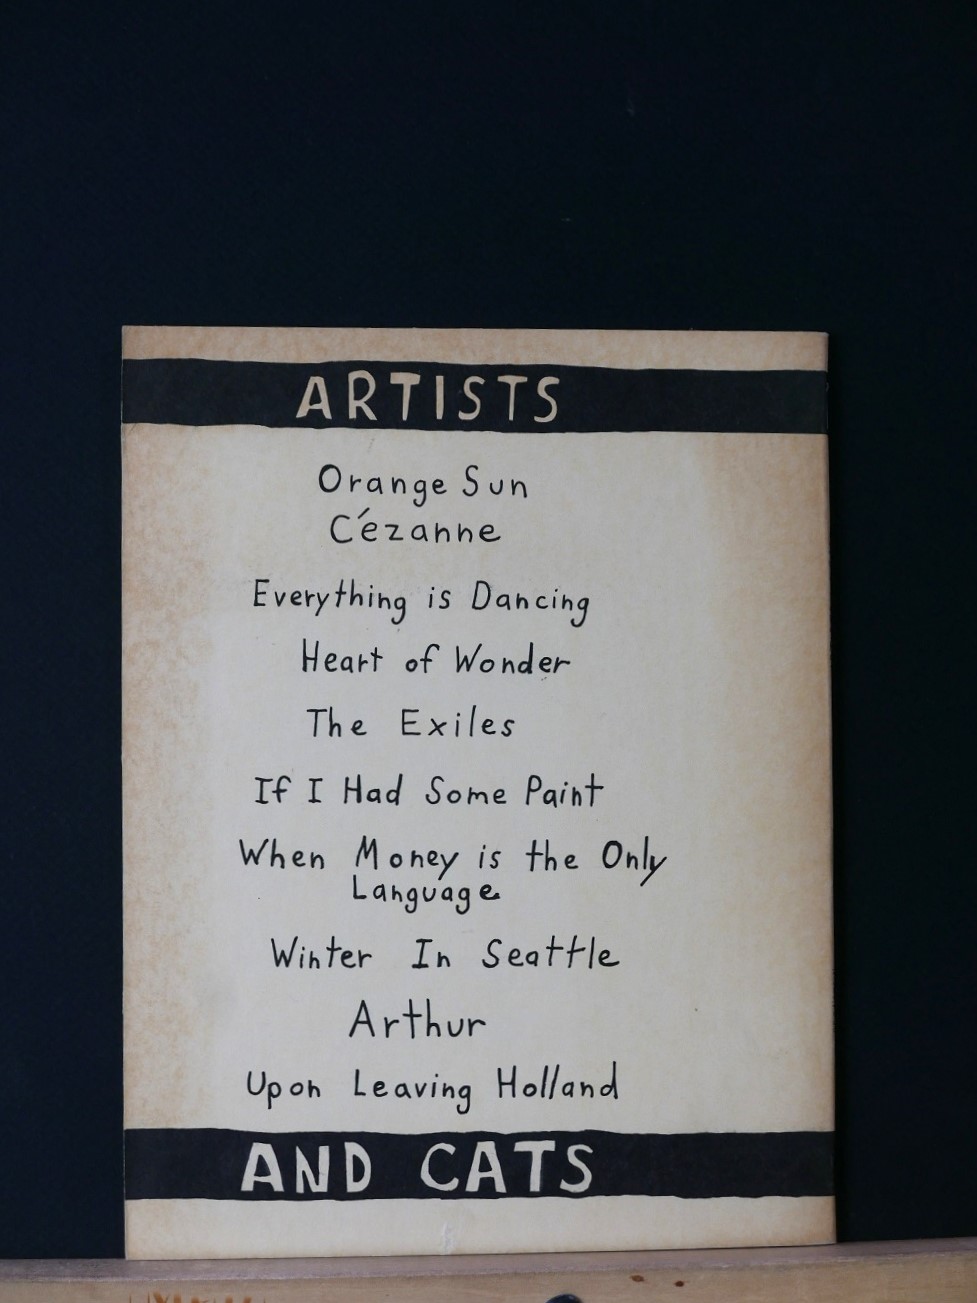 ARTISTS
Orange Sun
Cézanne
Everything is Dancing
Heart of Wonder
The Exiles
If I Had Some Paint
When Money is the Only
Language
Winter In Seattle
Arthur
Upon Leaving Holland
AND CATS